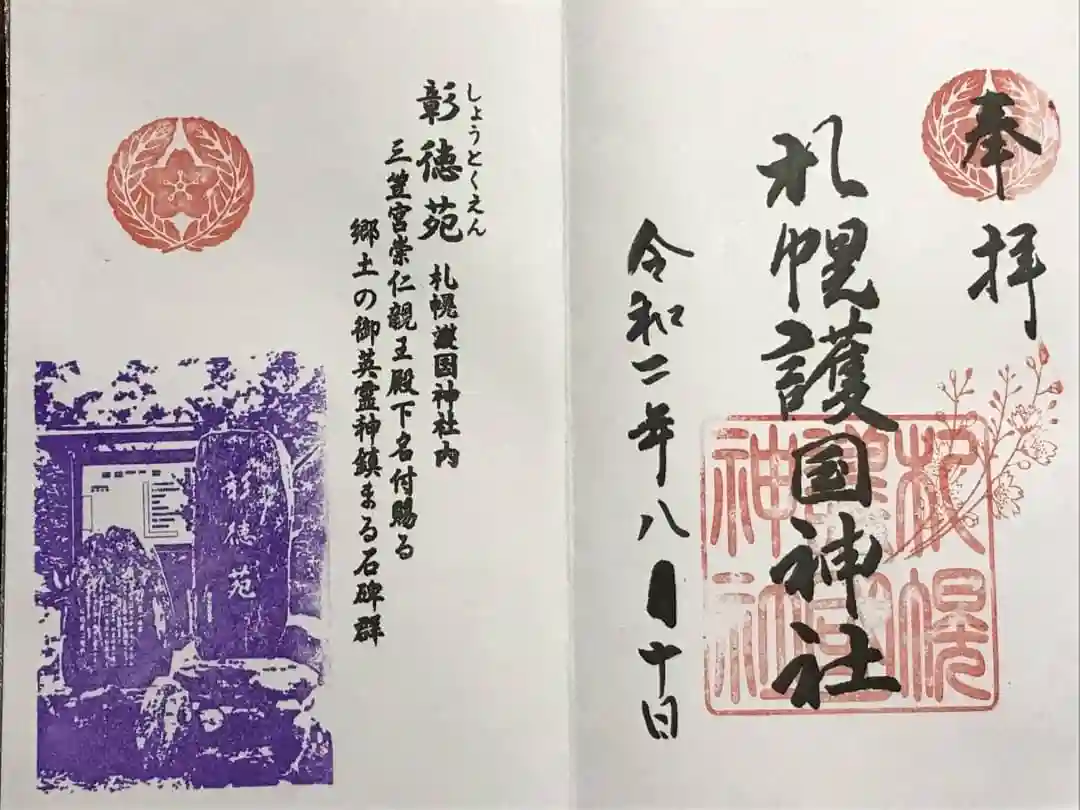 奉拝
札幌護国神社
令和二年八月十日
札幌
護国
神社
しょうとくえん
彰徳苑 札幌護国神社内
三笠宮崇仁親王殿下名付賜る
郷土の御英霊神鎮まる石碑群
彰徳苑